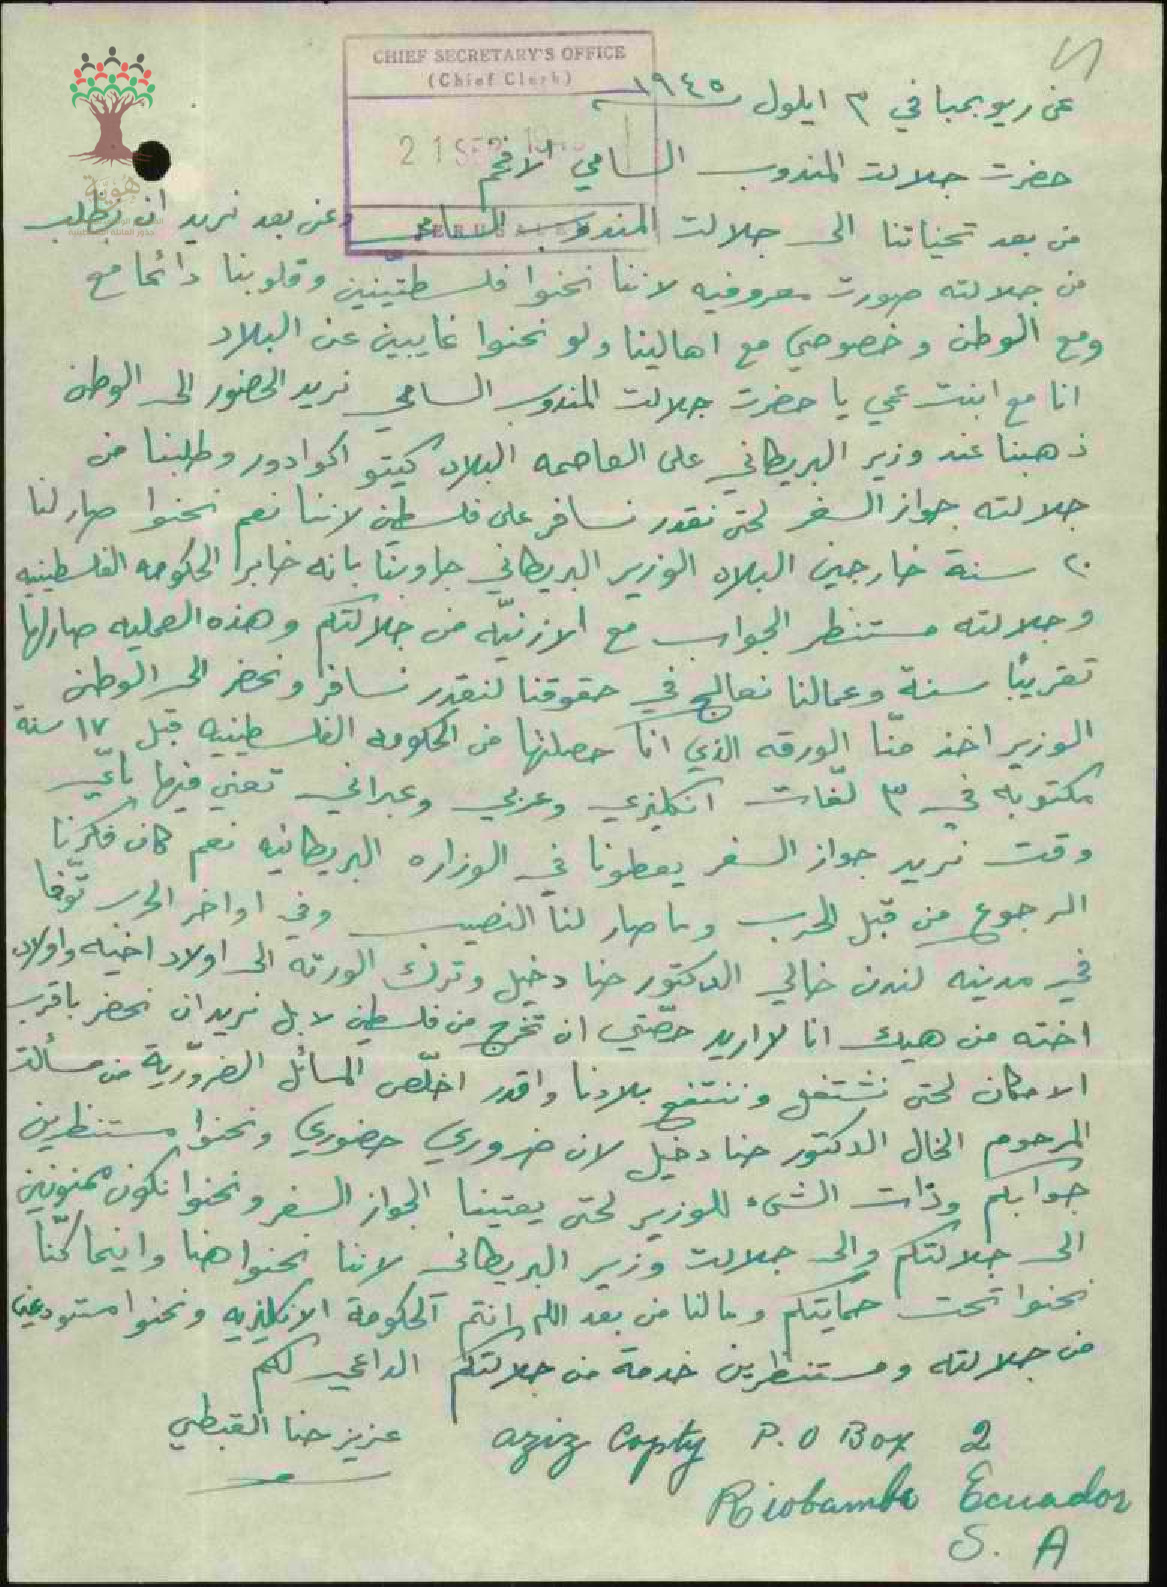 CHIEF SECRETARY'S OFFICE
(Chief Clerk)
21 SEP 1945
JERUSALEM
هوية
عن ريوبمبا في ٣ ايلول ١٩٤٥
حضرت جلالت المندوب السامي الافخم
من بعد تحياتنا الى جلالت المندوب السامي وعن بعد نريد ان نطلب
من جلالته صورت معروفيه لاننا نحنوا فلسطينيين وقلوبنا دائما مع
ومع الوطن وخصوصي مع اهالينا ولو نحنوا غايبين عن البلاد
انا مع ابنت عمي يا حضرت جلالت المندوب السامي نريد الحضور الى الوطن
ذهبنا عند وزير البريطاني على العاصمه البلاد كيتو اكوادور وطلبنا من
جلالته جواز السفر لحتى نقدر نسافر على فلسطين لاننا نعم نحنوا صار لنا
٢٠ سنة خارجين البلاد الوزير البريطاني جاوبنا بانه خابرا الحكومه الفلسطينيه
وجلالته مستنظر الجواب مع الازنيّه من جلالتكم وهذه العمليه صارلها
تقريبًا سنة وعمالنا نعالج في حقوقنا لنقدر نسافر ونحضر الى الوطن
الوزير اخذ منّا الورقه الذي انا حصلتها من الحكومه الفلسطينيه قبل ١٧ سنة
مكتوبه في ٣ لغات انكليزي وعربي وعبراني تعني فيها بأيّ
وقت نريد جواز السفر يعطونا في الوزاره البريطانيه نعم كان فكرنا
الرجوع من قبل الحرب وما صار لنا النصيب وفي اواخر الحرب توّفا
في مدينه لندن خالي الدكتور حنا دخيل وترك الورته الى اولاد اخيه واولاد
اخته من هيك انا لا اريد حصّتي ان تخرج من فلسطين لا بل نريد ان نحضر باقرب
الامكان لحتى نشتغل وننتفع بلادنا واقدر اخلّص المسائل الضرورية من مسألت
المرحوم الخال الدكتور حنا دخيل لان ضروري حضوري ونحنوا مستنظرين
جوابكم وذات الشيء للوزير لحتى يعتينا الجواز السفر ونحنوا نكون ممنونين
الى جلالتكم والى جلالت وزير البريطاني لاننا نحنوا هنا واينما كنّا
نحنوا تحت حمايتكم ومالنا من بعد الله انتم الحكومة الانكليزيه ونحنوا مستودعين
من جلالته ومستنظرين خدمة من جلالتكم الداعي لكم
عزيز حنا القبطي
Aziz Copty P.O Box 2
Riobamba Ecuador
S. A